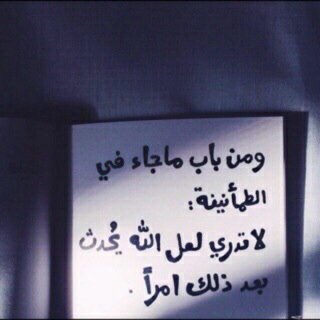 ومن باب ماجاء في
الطمأنينة:
لا تدري لعل الله يُحدث
بعد ذلك امراً .